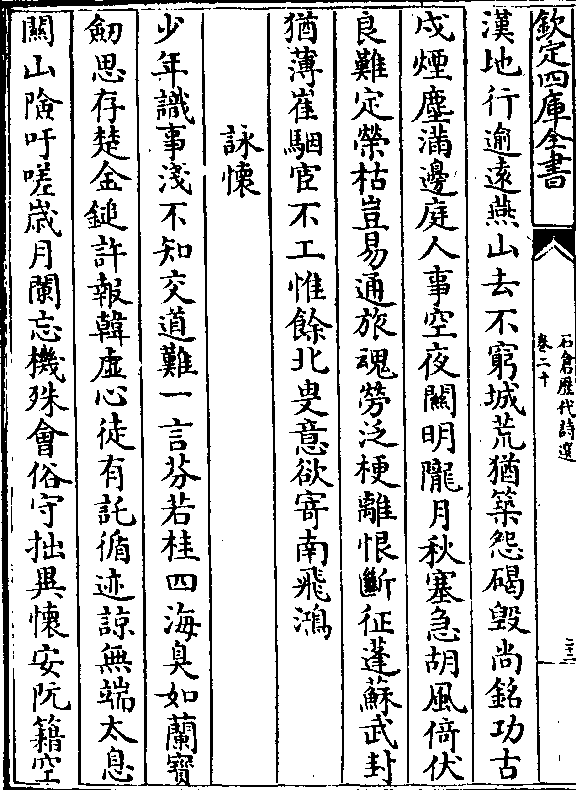 欽定四庫全書
石倉歷代詩選
卷二十
三三
漢地行逾遠燕山去不窮城荒猶築怨碣毀尚銘功古
戍煙塵滿邊庭人事空夜關明隴月秋塞急胡風倚伏
良難定榮枯豈易通旅魂勞泛梗離恨斷征蓬蘇武封
猶薄崔駰宦不工惟餘北叟意欲寄南飛鴻
詠懷
少年識事淺不知交道難一言芬若桂四海臭如蘭寶
劒思存楚金鎚許報韓虛心徒有託循迹諒無端太息
關山險吁嗟歲月闌忘機殊會俗守拙異懷安阮籍空